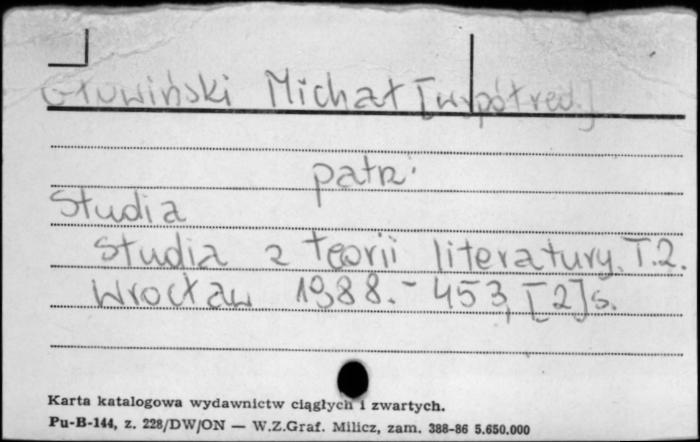 Głowiński Michał [współred.]
patrz.
Studia
Studia z teorii literatury. T.2.
Wrocław 1988.- 453, [2]s.
Karta katalogowa wydawnictw ciągłych i zwartych.
Pu-B-144, z. 228/DW/ON — W.Z.Graf. Milicz, zam. 388-86 5.650.000